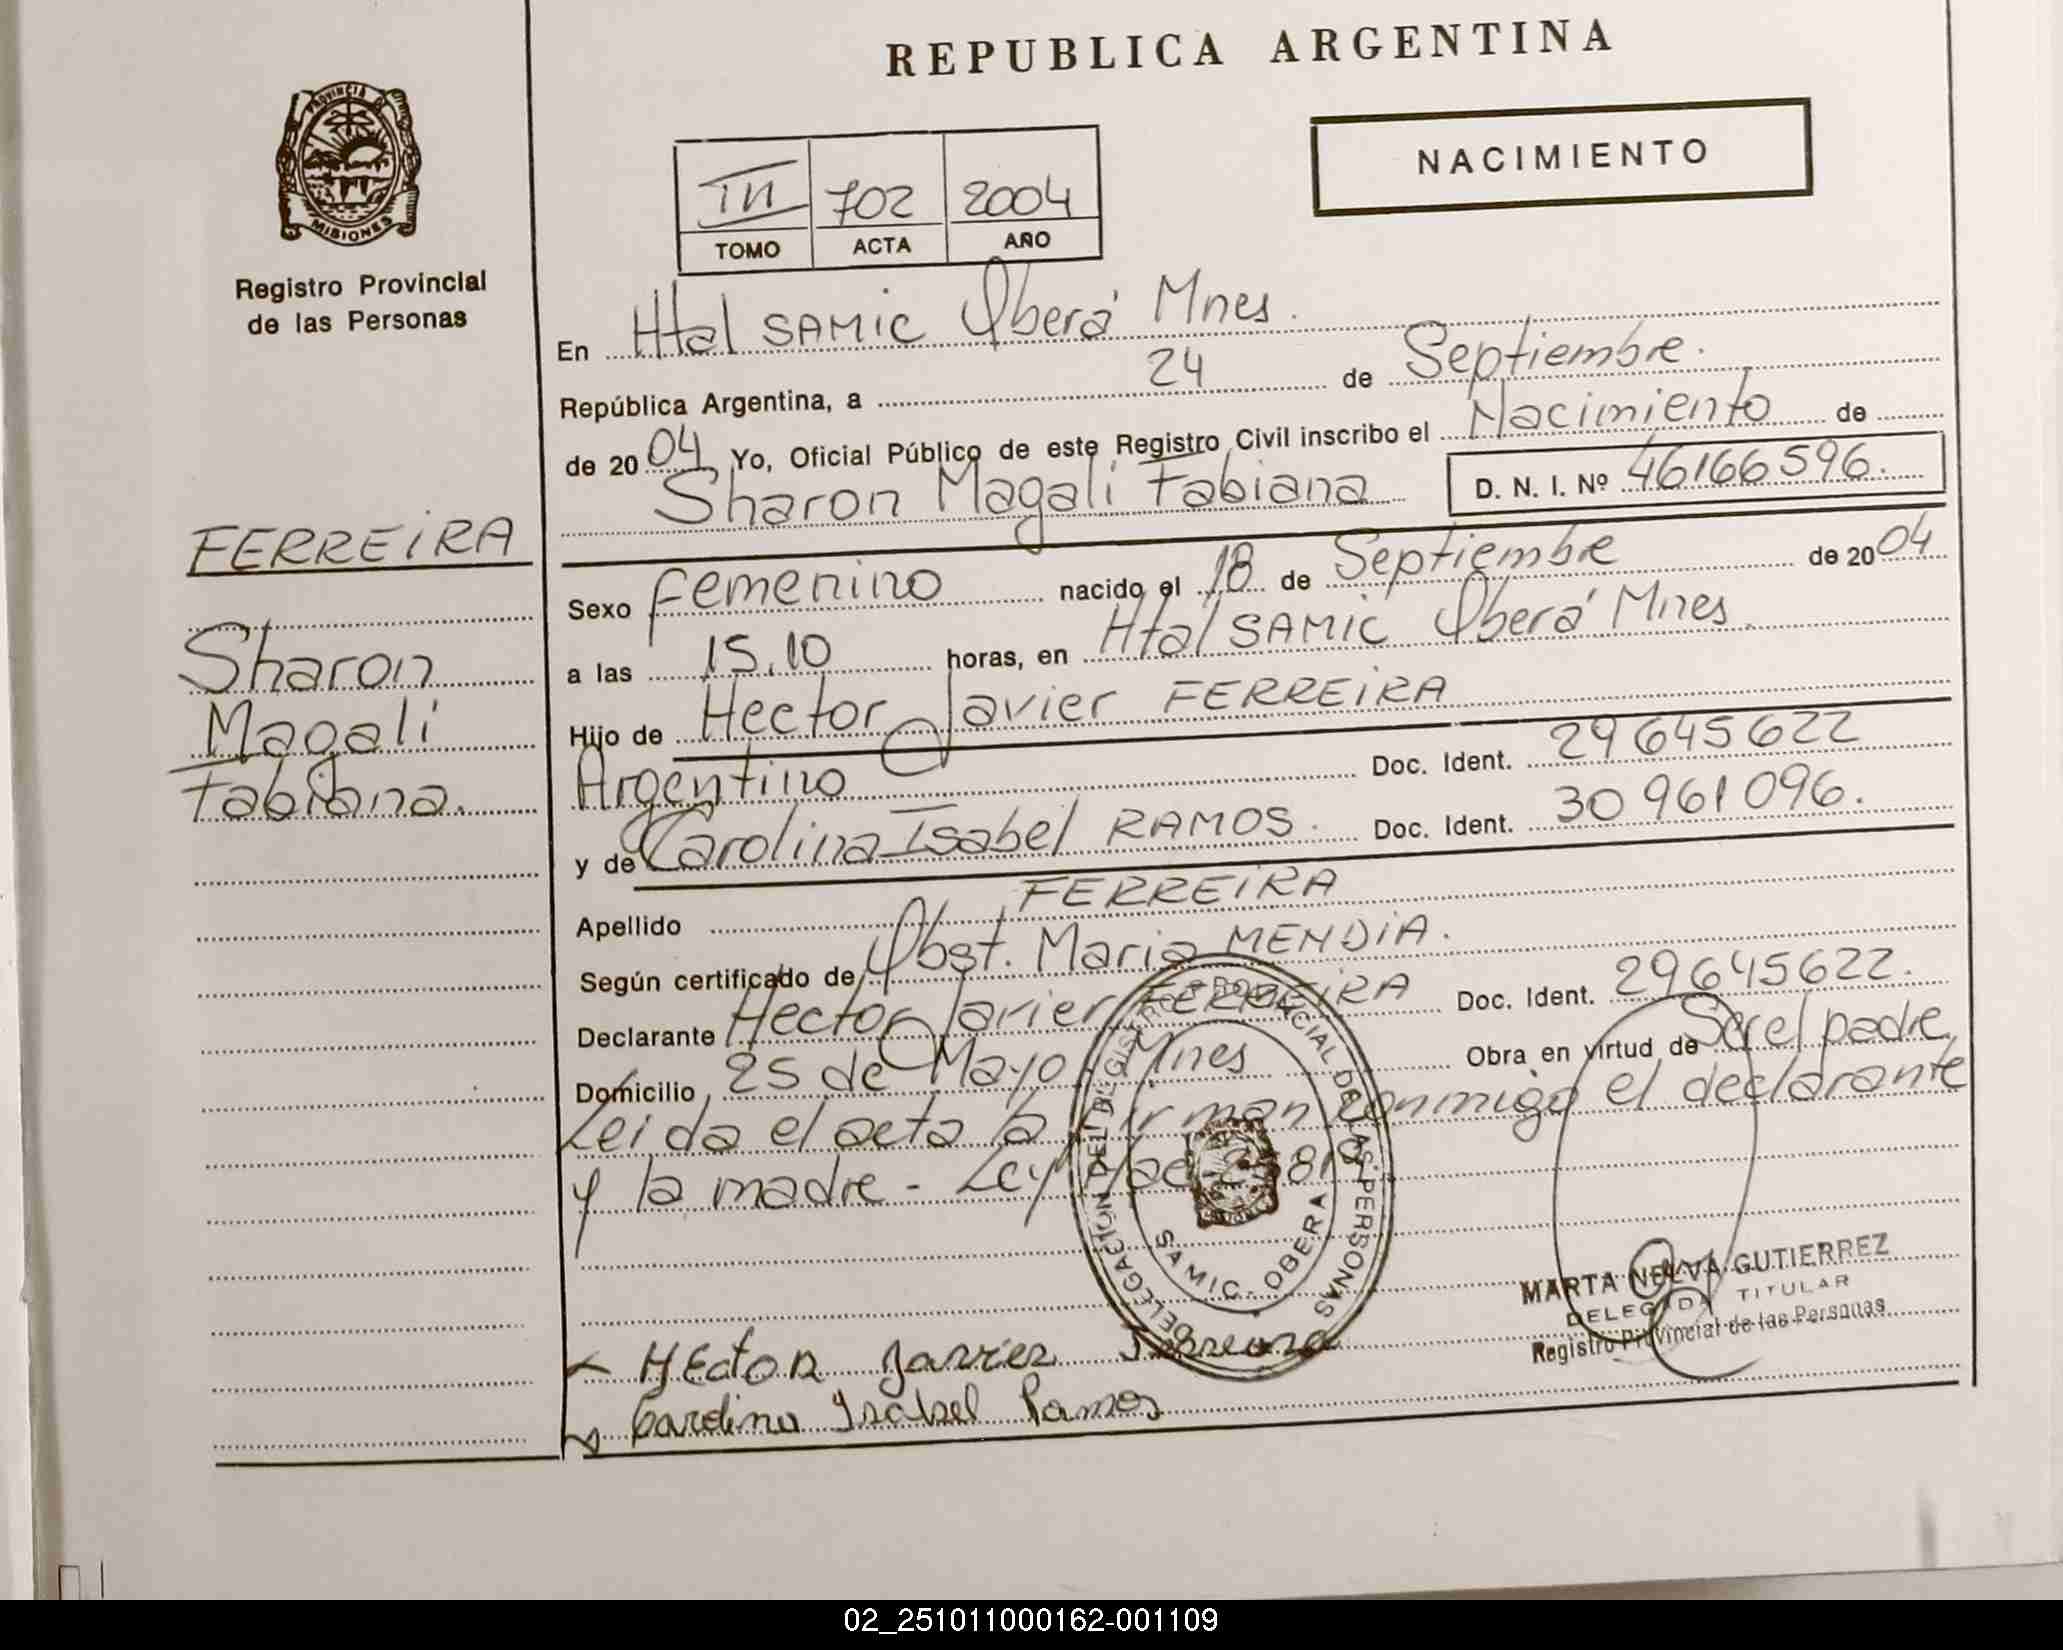 REPUBLICA ARGENTINA
NACIMIENTO
702 2004
TOMO ACTA AÑO
PROVINCIA DE
MISIONES
Registro Provincial
de las Personas
FERREIRA
Sharon
Magali
Fabiana.
En Htal SAMIC Oberá Mnes.
República Argentina, a 24 de Septiembre.
de 2004 Yo, Oficial Público de este Registro Civil inscribo el Nacimiento de
Sharon Magali Fabiana D. N. I. Nº 46166596.
Sexo Femenino nacido el 18 de Septiembre de 2004
a las 15.10 horas, en Htal SAMIC Oberá Mnes.
Hijo de Hector Javier FERREIRA
Argentino Doc. Ident. 29645622
y de Carolina Isabel RAMOS. Doc. Ident. 30961096.
Apellido FERREIRA
Según certificado de Obst. Maria MENDIA.
Declarante Hector Javier FERREIRA Doc. Ident. 29645622.
Domicilio 25 de Mayo Mnes Obra en virtud de Ser el padre
Leida el acta la firman conmigo el declarante
y la madre - Ley
DELEGACIÓN DEL REGISTRO PROVINCIAL DE LAS PERSONAS
SAMIC - OBERA
MARTA NELVA GUTIERREZ
DELEGADA TITULAR
Registro Provincial de las Personas
HEctoR Javier Ferreira
Carolina Isabel Ramos
02_251011000162-001109